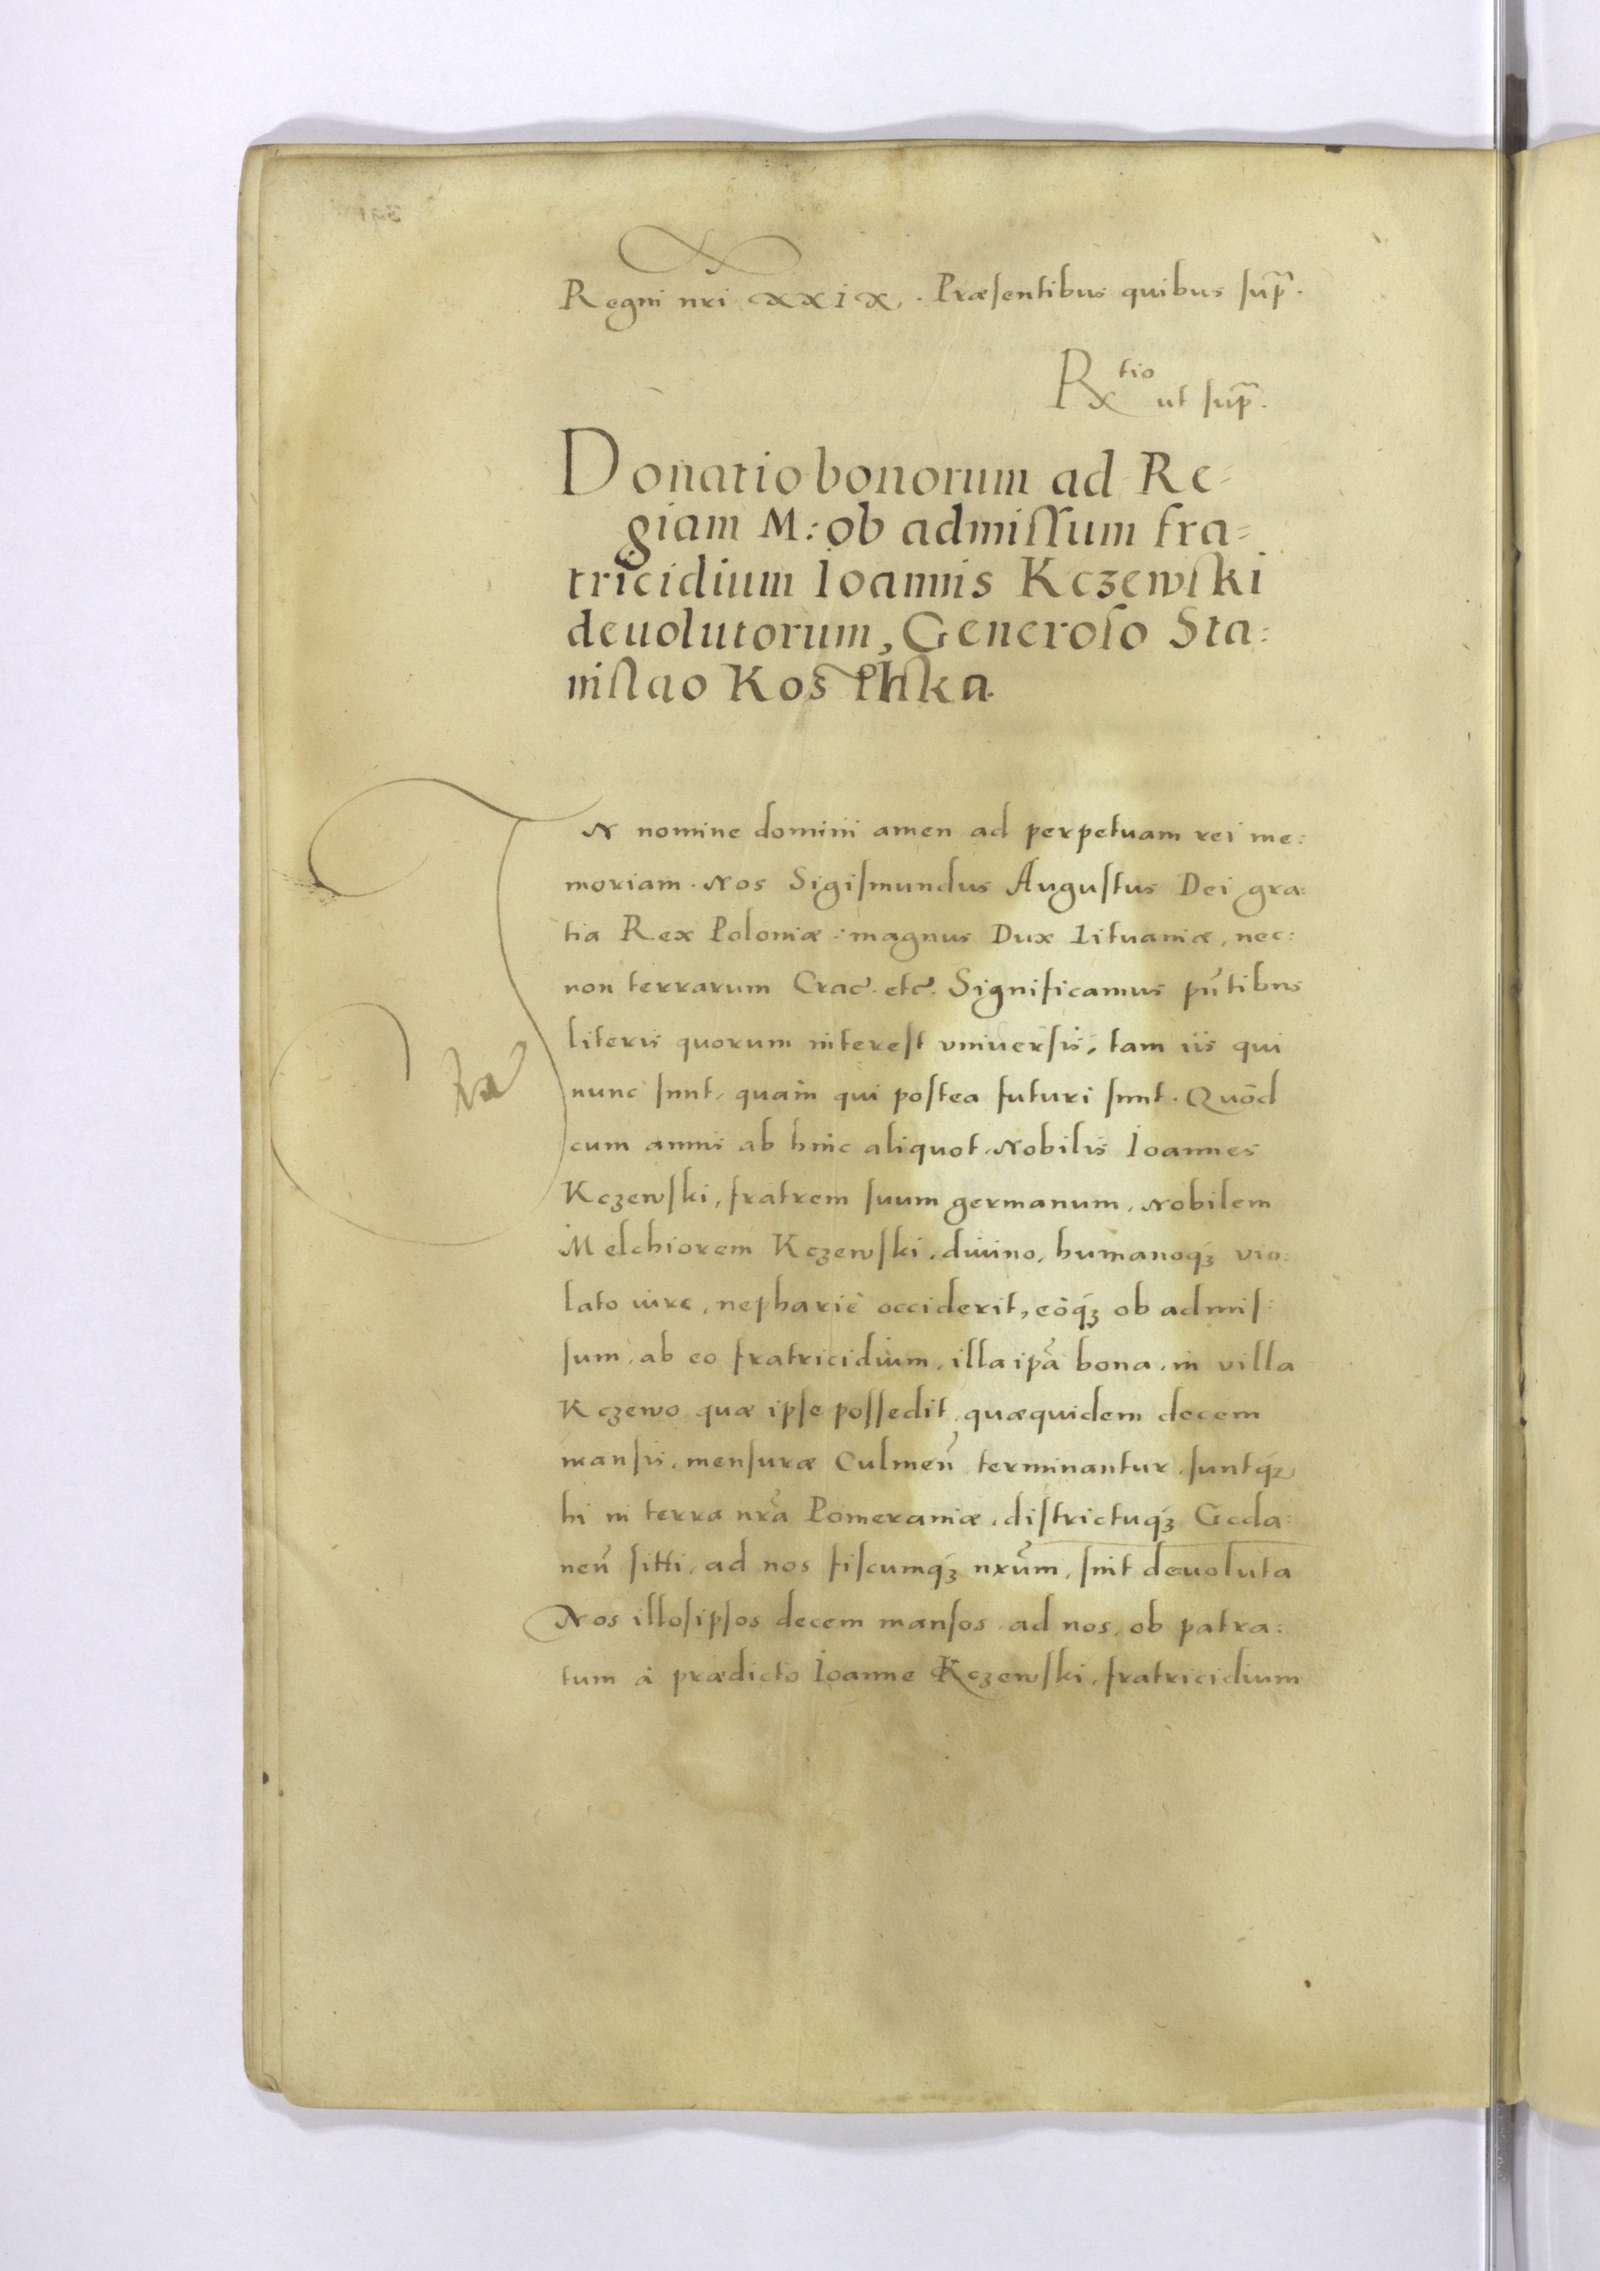 Regni nri XXIX. Præsentibus quibus sup̃.
Rtio ut sup̃.
Donatio bonorum ad Re-
giam M: ob admissum fra-
tricidium Ioannis Kczewski
deuolutorum, Generoso Sta:
nislao Kosthka.
IN nomine domini amen ad perpetuam rei me:
moriam. Nos Sigismundus Augustus Dei gra:
tia Rex Poloniæ magnus Dux Lituaniæ, nec:
non terrarum Crac̃. etc̃. Significamus pñtibus
literis quorum interest vniuersis, tam iis qui
nunc sunt, quàm qui postea futuri sunt. Quòd
cum annis ab hinc aliquot, Nobilis Ioannes
Kczewski, fratrem suum germanum, Nobilem
Melchiorem Kczewski, diuino, humanoqꝫ vio:
lato iure, nephariè occiderit, eòqꝫ ob admis:
sum, ab eo fratricidium, illa ip̃a bona, in villa
Kczewo quæ ipse possedit, quæquidem decem
mansis, mensuræ Culmeñ terminantur, suntqꝫ
hi in terra nr̃a Pomeraniæ, districtuqꝫ Geda:
neñ sitti, ad nos fiscumqꝫ nr̃um, sint deuoluta
Nos illosipsos decem mansos ad nos, ob patra:
tum à prædicto Ioanne Kczewski, fratricidium